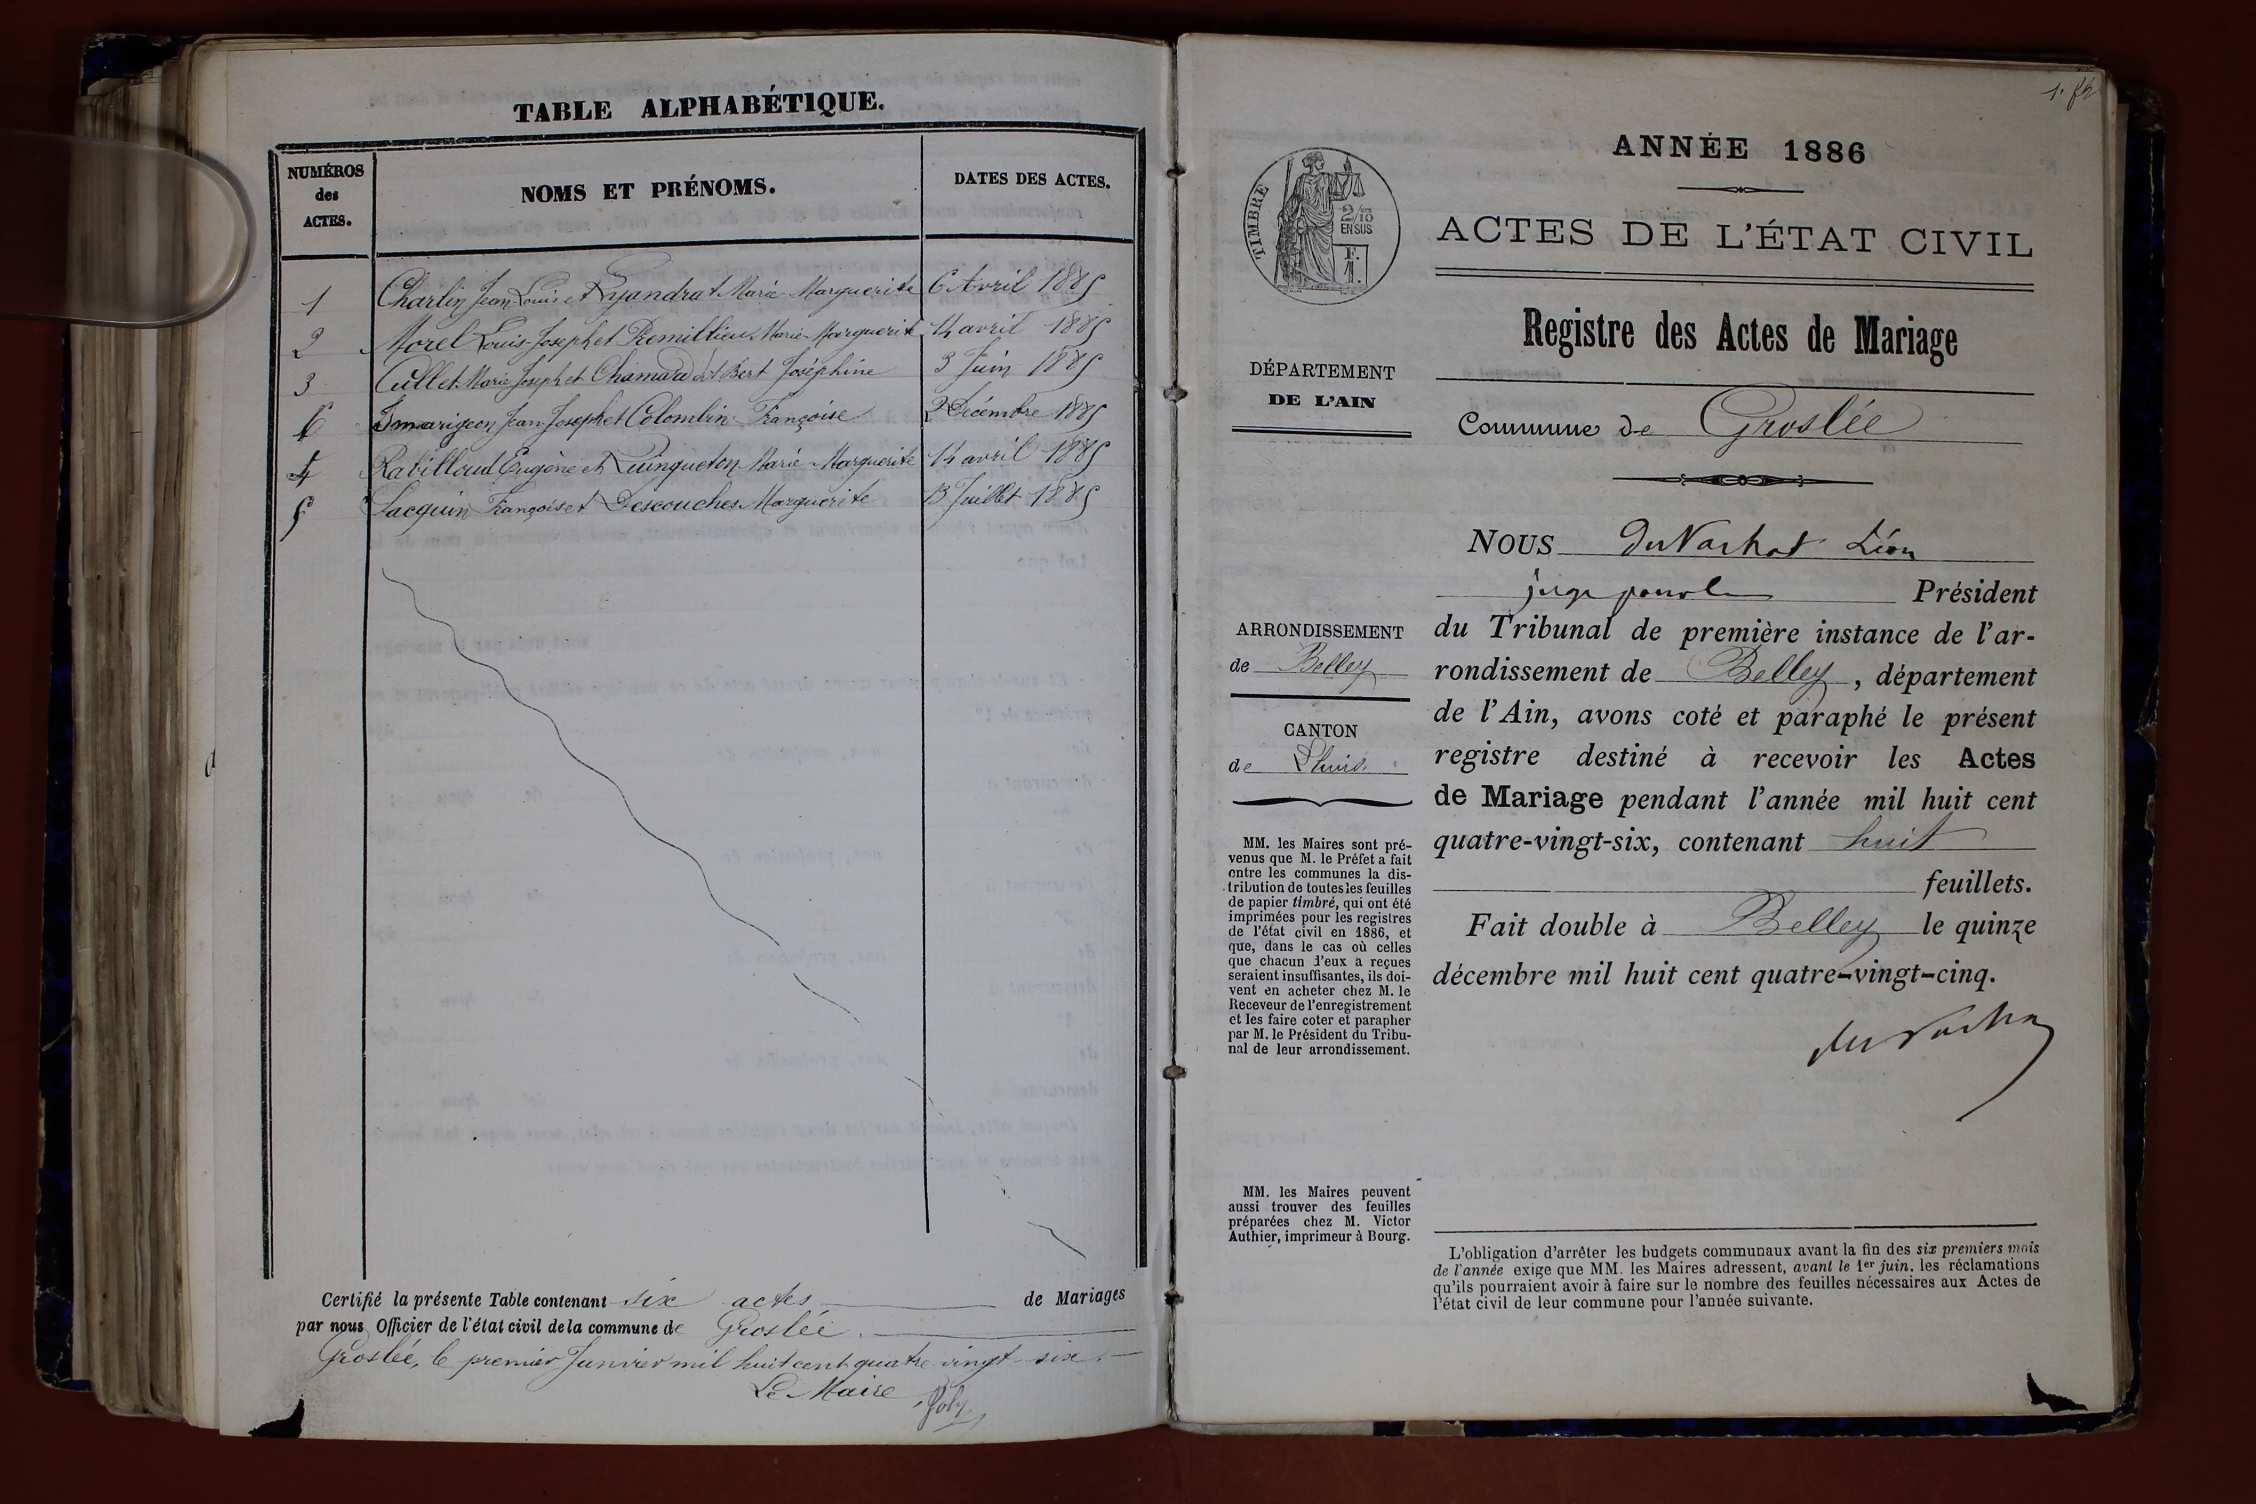 TABLE ALPHABÉTIQUE.
NUMÉROS des ACTES.
NOMS ET PRÉNOMS.
DATES DES ACTES.
1 Charlin Jean-Louis et Marie-Marguerite 6 Avril 1885
2 Morel Louis-Joseph et Premillieu Marie-Marguerite 14 avril 1885
3 Cullet Marie Joseph et Chamard dit Bert Joséphine 3 Juin 1885
6 Jean-Joseph et Colombin Françoise 2 Décembre 1885
4 Rabilloud Eugène et Quinqueton Marie-Marguerite 14 avril 1885
5 François et Descouches Marguerite 13 Juillet 1885
Certifié la présente Table contenant six actes de Mariages
par nous Officier de l'état civil de la commune de Groslée.
Groslée, le premier Janvier mil huit cent quatre-vingt-six.
Le Maire
Joly
ANNÉE 1886
ACTES DE L'ÉTAT CIVIL
TIMBRE
2/10
EN SUS
F.
1.
Registre des Actes de Mariage
DÉPARTEMENT
DE L'AIN
Commune de Groslée
NOUS du Vachat Léon
juge pour le Président
ARRONDISSEMENT
de Belley
CANTON
de Lhuis
du Tribunal de première instance de l'ar-
rondissement de Belley, département
de l'Ain, avons coté et paraphé le présent
registre destiné à recevoir les Actes
de Mariage pendant l'année mil huit cent
quatre-vingt-six, contenant huit
feuillets.
Fait double à Belley le quinze
décembre mil huit cent quatre-vingt-cinq.
du Vachat
MM. les Maires sont pré-
venus que M. le Préfet a fait
entre les communes la dis-
tribution de toutes les feuilles
de papier timbré, qui ont été
imprimées pour les registres
de l'état civil en 1886, et
que, dans le cas où celles
que chacun d'eux a reçues
seraient insuffisantes, ils doi-
vent en acheter chez M. le
Receveur de l'enregistrement
et les faire coter et parapher
par M. le Président du Tribu-
nal de leur arrondissement.
MM. les Maires peuvent
aussi trouver des feuilles
préparées chez M. Victor
Authier, imprimeur à Bourg.
L'obligation d'arrêter les budgets communaux avant la fin des six premiers mois
de l'année exige que MM. les Maires adressent, avant le 1er juin, les réclamations
qu'ils pourraient avoir à faire sur le nombre des feuilles nécessaires aux Actes de
l'état civil de leur commune pour l'année suivante.